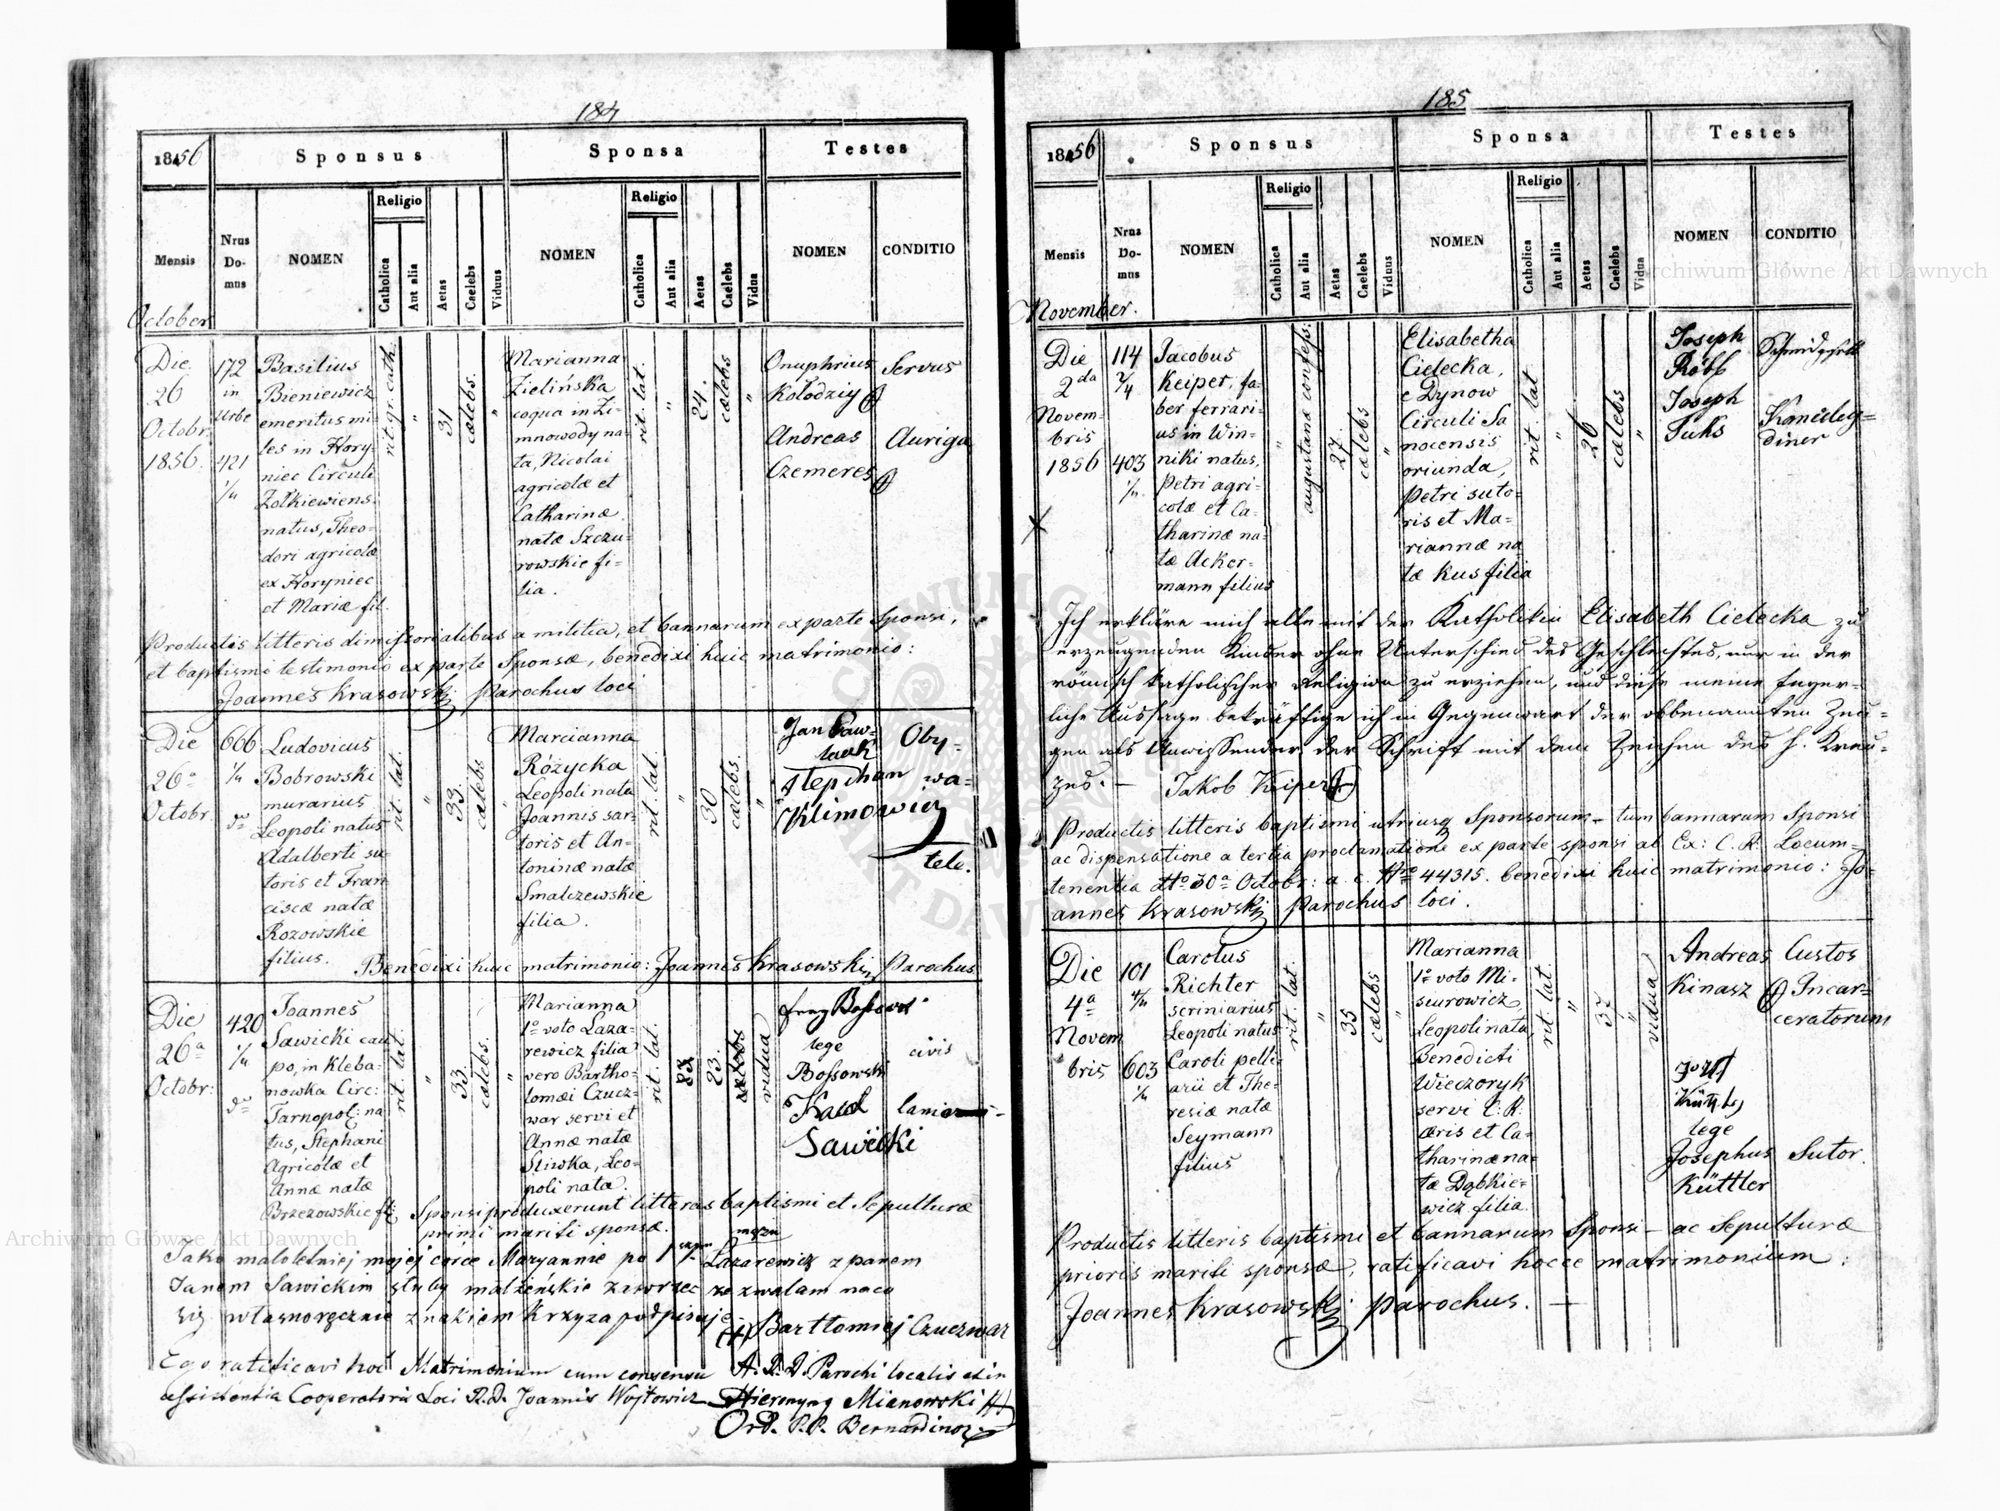 184
1856
Sponsus
Sponsa
Testes
Mensis
Nrus Do- mus
NOMEN
Religio
Catholica
Aut alia
Aetas
Caelebs
Viduus
NOMEN
Religio
Catholica
Aut alia
Aetas
Caelebs
Vidua
NOMEN
CONDITIO
October
Die
26
Octobr.
1856.
172
in
urbe
421
1/4
Basilius
Bieniewicz
emeritus mi-
les in Hory-
niec Circuli
Żołkiewiens.
natus, Theo-
dori agricolæ
ex Horyniec
et Mariæ fil.
rit. gr. cath.
"
31
cælebs.
"
Marianna
Zielińska
coqua in Zi-
mnowody na-
ta, Nicolai
agricolæ et
Catharinæ
natæ Szczu-
rowskie fi-
lia.
rit. lat.
"
24.
cælebs
"
Onuphrius
Kołodziy
Andreas
Czemeres
Servus
Auriga
Productis litteris dimissorialibus a militia, et bannarum ex parte Sponsi,
et baptismi testimonio ex parte Sponsæ, benedixi huic matrimonio:
Joannes Krasowski Parochus loci
Die
26a
Octobr.
606
1/4
Ludovicus
Bobrowski
murarius
Leopoli natus
Adalberti su-
toris et Fran-
ciscæ natæ
Rozowskie
filius.
rit. lat.
"
33.
cælebs
"
Marcianna
Różycka
Leopoli nata
Joannis sar-
toris et An-
toninæ natæ
Smalczewskie
filia.
rit. lat.
"
30
cælebs.
"
Jan Paw-
Stephan
Klimowicz
Oby-
wa-
tele.
Benedixi huic matrimonio: Joannes Krasowski Parochus
Die
26a
Octobr:
420
1/4
Joannes
Sawicki cau-
po, in Kleba-
nowka Circ:
Tarnopol: na-
tus, Stephani
Agricolæ et
Annæ natæ
Brzezowskie fil:
rit. lat.
"
33.
cælebs.
"
Marianna
1o voto Laza-
rewicz filia
vero Bartho-
lomæi Czucz-
war servi et
Annæ natæ
Sliwka, Leo-
poli nata.
rit. lat.
23.
cælebs
vidua
lege
Bossowski
Karol
Sawicki
civis
Sponsi produxerunt litteras baptismi et Sepulturæ
primi mariti sponsæ.
Jako małoletniej mojej córce Maryannie po 1 mężu Lazarewicz z panem
Janem Sawickim śluby małżeńskie zawrzec zezwalam na co
się własnoręcznie znakiem Krzyza podpisuję
Bartłomiej Czuczwar
Ego ratificavi hoc Matrimonium cum consensu A. R. D. Parochi localis et in
assistentia Cooperatoris Loci R. D. Joannis Wojtowicz Hieronymg Mianowski
Ord. P. P. Bernardinor
185
1856
Sponsus
Sponsa
Testes
Mensis
Nrus Do- mus
NOMEN
Religio
Catholica
Aut alia
Aetas
Caelebs
Viduus
NOMEN
Religio
Catholica
Aut alia
Aetas
Caelebs
Vidua
NOMEN
CONDITIO
November.
Die
2da
Novem-
bris
1856
114
2/4
403
1/4
Jacobus
Keiper, fa-
ber ferrari-
us in Win-
niki natus,
Petri agri-
colæ et Ca-
tharinæ na-
tæ Acker-
mann filius
"
augustanæ confess.
27.
cælebs
"
Elisabetha
Cielecka,
e Dynow
Circuli Sa-
nocensis
oriunda,
Petri suto-
ris et Ma-
riannæ na-
tæ Kus filia
rit. lat.
"
26
cælebs
"
Joseph
Joseph
Fuks
diner
Ich erkläre mich alle mit der Katholikin Elisabeth Cielecka zu
erzeugenden Kinder ohne Unterschied des Geschlechtes, nur in der
römisch katholischer Religion zu erziehen, und diese meine feyer-
liche Aussage bekräftige ich in Gegenwart der obbenannten Zeu-
gen als Unwissender der Schrift mit dem Zeichen des h. Kreu-
zes. — Jakob Keiper
Productis litteris baptismi utriusq Sponsorum – tum bannarum Sponsi
ac dispensatione a tertia proclamatione ex parte sponsi ab Ex: C. R. Locum-
tenentia dto 30a Octobr: a. c. Nro 44315. benedixi huic matrimonio: Jo-
annes Krasowski Parochus loci.
Die
4a
Novem
bris
101
4/4
603
1/4
Carolus
Richter
scriniarius
Leopoli natus
Caroli pelli-
arii et The-
resiæ natæ
Seymann
filius
rit. lat.
"
35
cælebs
"
Marianna
1o voto Mi-
siurowicz
Leopoli nata,
Benedicti
Wieczoryk
servi C. R.
æris et Ca-
tharinæ na-
tæ Dąbkie-
wicz filia.
rit. lat.
"
37
"
vidua
Andreas
Kinasz
Custos
Incar-
ceratorum
lege
Josephus
Küttler
Sutor.
Productis litteris baptismi et bannarum Sponsi – ac Sepulturæ
prioris mariti sponsæ, ratificavi hocce matrimonium:
Joannes Krasowski Parochus. —
Archiwum Główne Akt Dawnych
Archiwum Główne Akt Dawnych